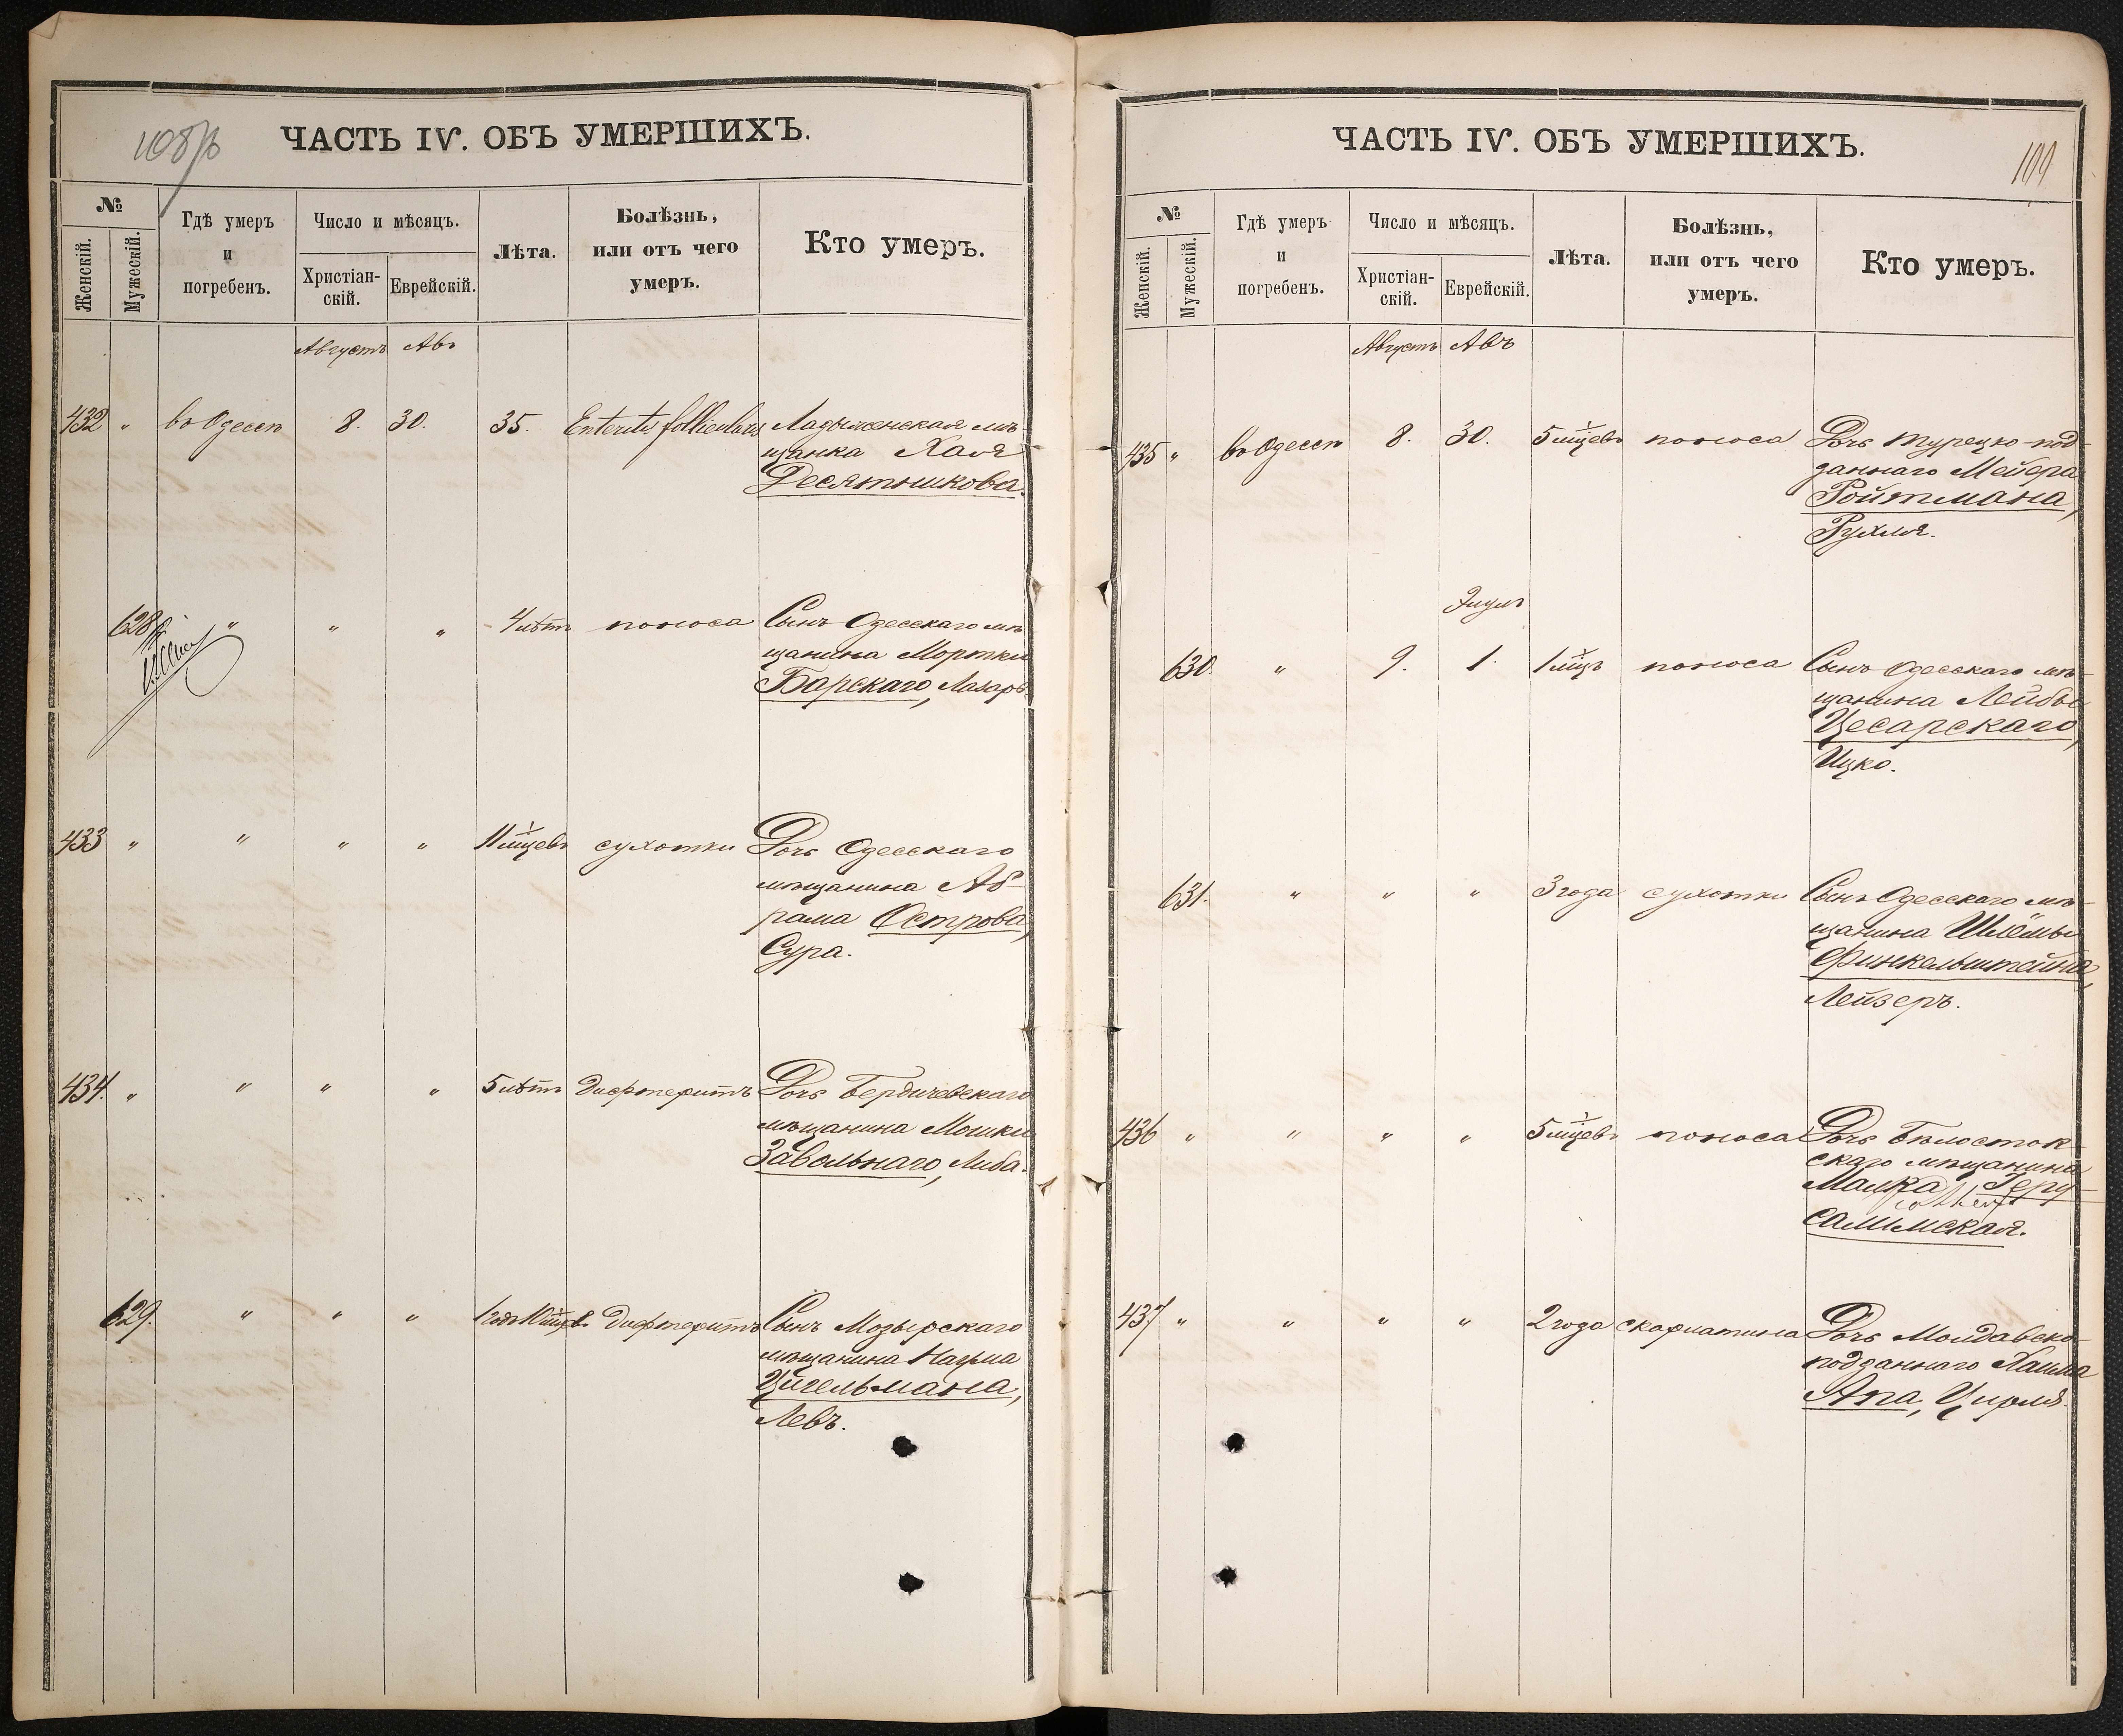 108
ЧАСТЬ IV. ОБЪ УМЕРШИХЪ.
№
Женскій.
Мужескій.
Гдѣ умеръ
и
погребенъ.
Число и мѣсяцъ.
Христіан-
скій.
Еврейскій.
Лѣта.
Болѣзнь,
или отъ чего
умеръ.
Кто умеръ.
Августъ Авъ
432 " въ Одессѣ 8. 30. 35. Enteritis follicularis Ладыженская мѣ-
щанка Хая
Десятникова.
628 " " " 4 лѣтъ поноса Сынъ Одесскаго мѣ-
щанина Мортки
Барскаго, Лазарь
433 " " " " 11 мцевъ сухотки Дочь Одесскаго
мѣщанина Аб-
рама Острова,
Сура.
434. " " " " 5 лѣтъ дифтеритъ Дочь Бердичевскаго
мѣщанина Мошки
Завольнаго, Либа.
629. " " " 1 годъ 10 мцевъ дифтеритъ Сынъ Мозырскаго
мѣщанина Нахмана
Цигельмана,
Левъ.
ЧАСТЬ IV. ОБЪ УМЕРШИХЪ.
109
№
Женскій.
Мужескій.
Гдѣ умеръ
и
погребенъ.
Число и мѣсяцъ.
Христіан-
скій.
Еврейскій.
Лѣта.
Болѣзнь,
или отъ чего
умеръ.
Кто умеръ.
Августъ Авъ
435 " въ Одессѣ 8. 30. 5 мцевъ поноса Дочь турецко-под-
даннаго Мейера
Ройтмана,
Рухля.
Элулъ
630. " 9. 1. 1 мцъ поноса Сынъ Одесскаго мѣ-
щанина Лейбы
Цесарскаго,
Ицко.
631. " " " 3 года сухотки Сынъ Одесскаго мѣ-
щанина Шлёмы
Финкельштейна,
Лейзеръ.
436 " " " " 5 мцевъ поноса Дочь Бѣлосток-
скаго мѣщанина
Малка Іеру-
салимская.
437 " " " " 2 года скарлатина Дочь Молдавско-
подданнаго Хаима
Апа, Цирля.